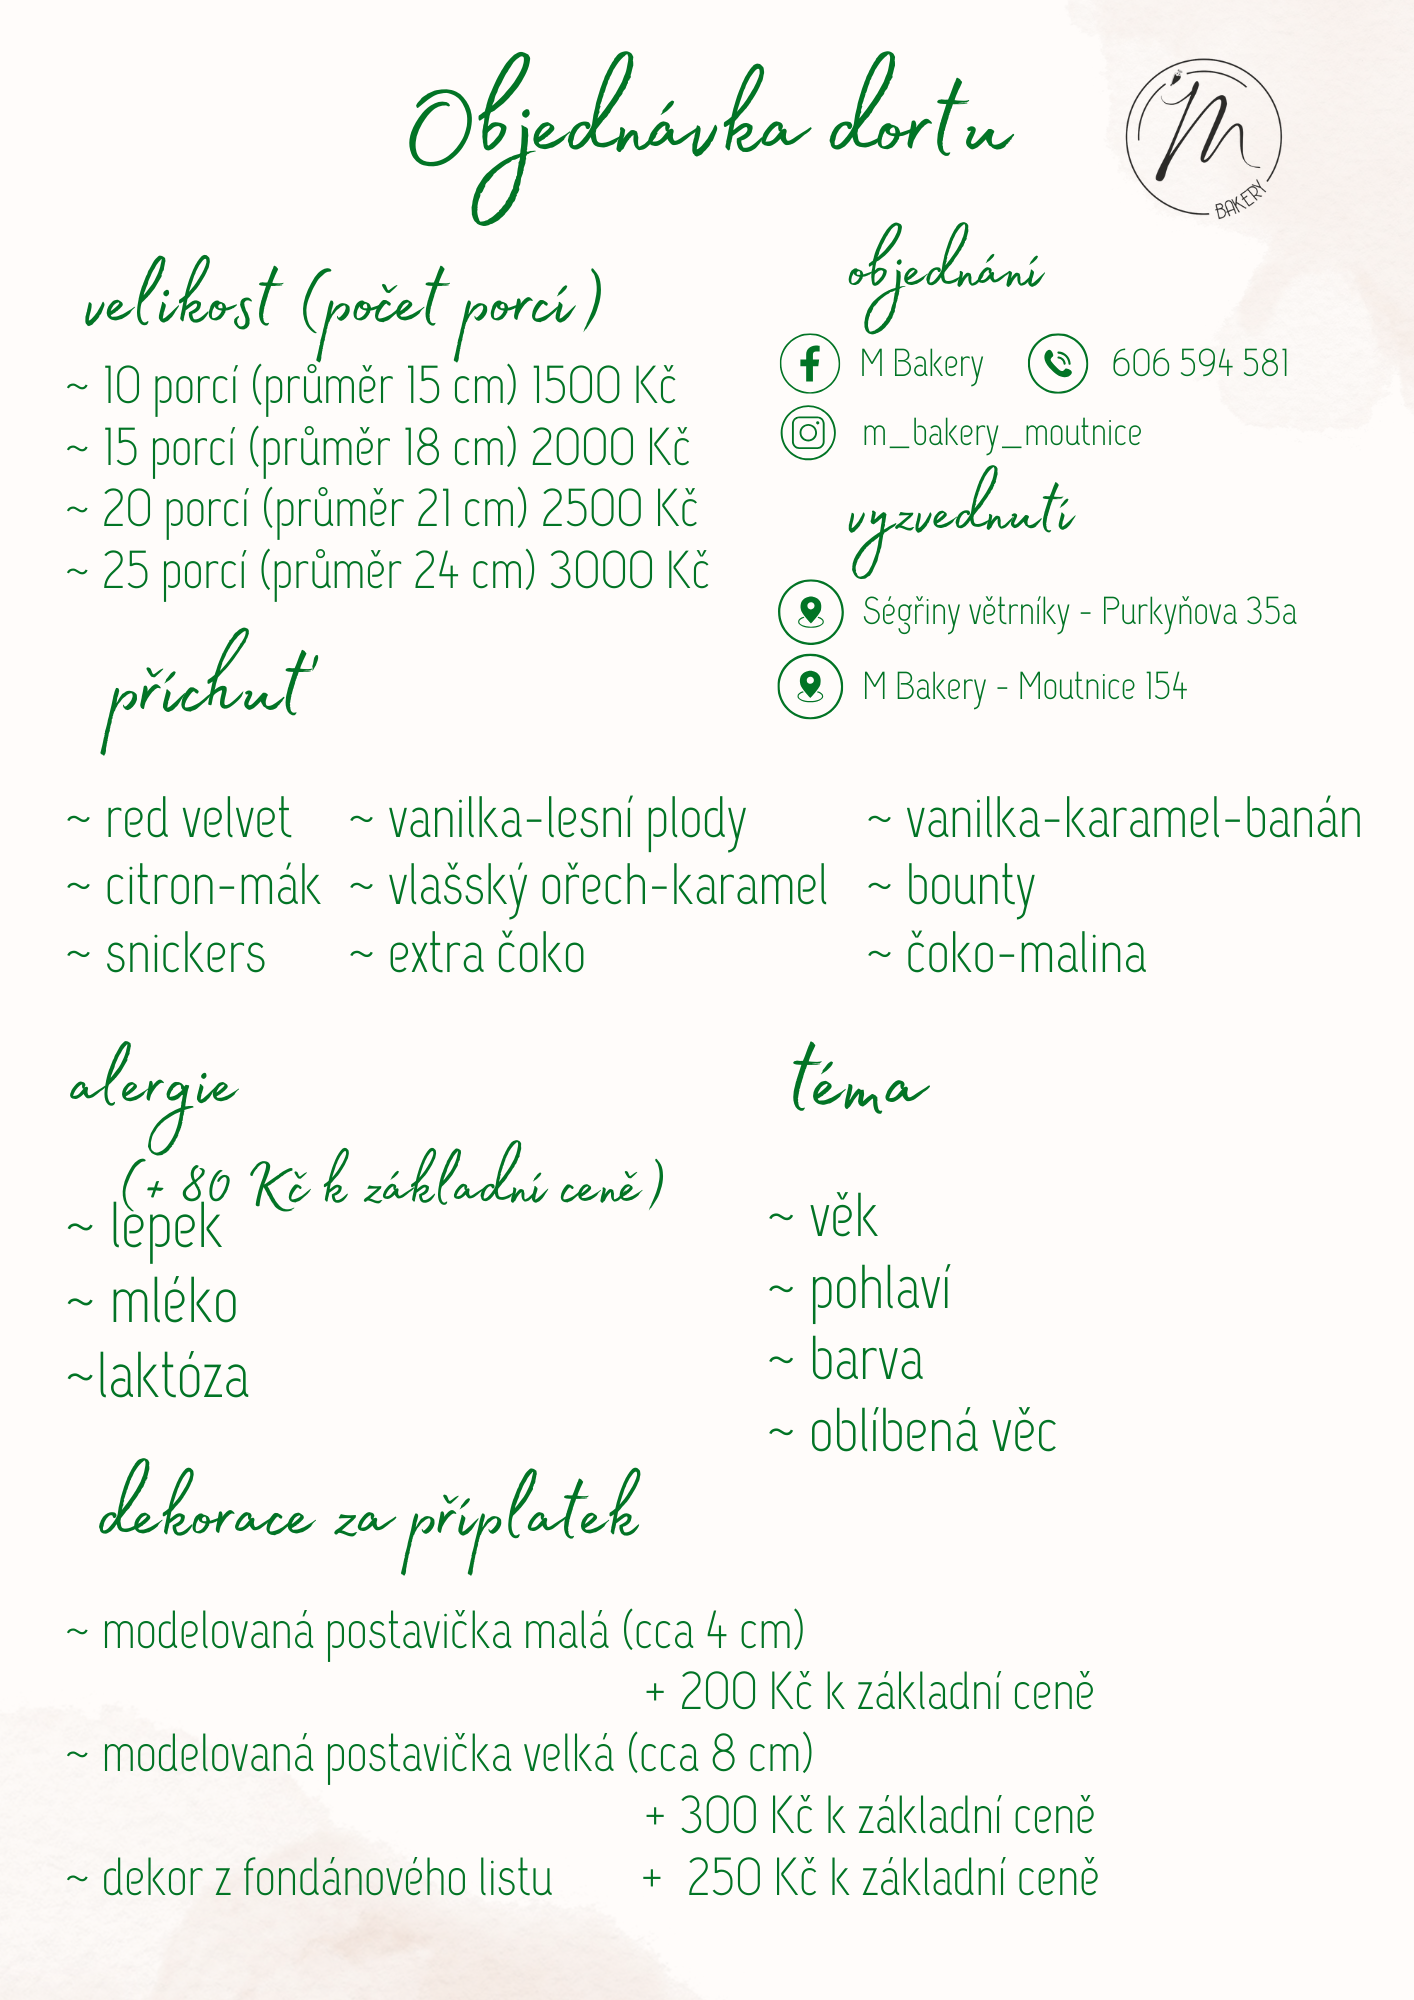 Objednávka dortu
M
BAKERY
velikost (počet porcí)
~ 10 porcí (průměr 15 cm) 1500 Kč
~ 15 porcí (průměr 18 cm) 2000 Kč
~ 20 porcí (průměr 21 cm) 2500 Kč
~ 25 porcí (průměr 24 cm) 3000 Kč
objednání
M Bakery 606 594 581
m_bakery_moutnice
vyzvednutí
Ségřiny větrníky - Purkyňova 35a
M Bakery - Moutnice 154
příchuť
~ red velvet
~ citron-mák
~ snickers
~ vanilka-lesní plody
~ vlašský ořech-karamel
~ extra čoko
~ vanilka-karamel-banán
~ bounty
~ čoko-malina
alergie
(+ 80 Kč k základní ceně)
~ lepek
~ mléko
~laktóza
téma
~ věk
~ pohlaví
~ barva
~ oblíbená věc
dekorace za příplatek
~ modelovaná postavička malá (cca 4 cm)
+ 200 Kč k základní ceně
~ modelovaná postavička velká (cca 8 cm)
+ 300 Kč k základní ceně
~ dekor z fondánového listu + 250 Kč k základní ceně